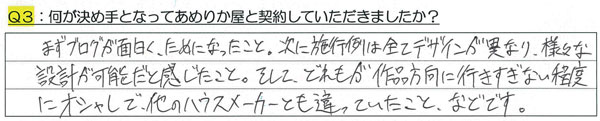 Q3：何が決め手となってあめりか屋と契約していただきましたか？
まずブログが面白く、ためになったこと。次に施行例は全てデザインが異なり、様々な
設計が可能だと感じたこと。そして、どれもが作品方向に行きすぎない程度
にオシャレで、他のハウスメーカーとも違っていたこと、などです。